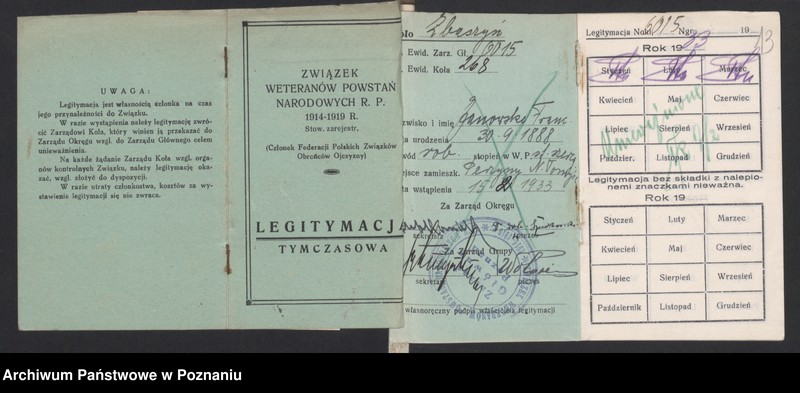 UWAGA:
Legitymacja jest własnością członka na czas
jego przynależności do Związku.
W razie wystąpienia należy legitymację zwró-
cić Zarządowi Koła, który winien ją przekazać do
Zarządu Okręgu wzgl. do Zarządu Głównego celem
unieważnienia.
Na każde żądanie Zarządu Koła wzgl. orga-
nów kontrolnych Związku, należy legitymację oka-
zać, wzgl. złożyć do dyspozycji.
W razie utraty członkostwa, kosztów za wy-
stawienie legitymacji się nie zwraca.
ZWIĄZEK
WETERANÓW POWSTAŃ
NARODOWYCH R. P.
1914-1919 R.
Stow. zarejestr.
(Członek Federacji Polskich Związków
Obrońców Ojczyzny)
LEGITYMACJA
TYMCZASOWA
Zbąszyń
Ewid. Zarz. Gł. 6015
Ewid. Koła 268
zwisko i imię Janowski
a urodzenia 30.9.1888
wód rob. stopień w W. P. st. szer.
iejsce zamieszk.
ta wstąpienia 15 2 1933
Za Zarząd Okręgu
sekretarz prezes
Za Zarząd Grupy
sekretarz prezes
własnoręczny podpis właściciela legitymacji
Legitymacja No 6015 Ngr. 19 33
Rok 19 33
Styczeń Luty Marzec
Kwiecień Maj Czerwiec
Lipiec Sierpień Wrzesień
Paździer. Listopad Grudzień
Unieważniono
Legitymacja bez składki z nalepio-
nemi znaczkami nieważna.
Rok 19
Styczeń Luty Marzec
Kwiecień Maj Czerwiec
Lipiec Sierpień Wrzesień
Październik Listopad Grudzień
Archiwum Państwowe w Poznaniu